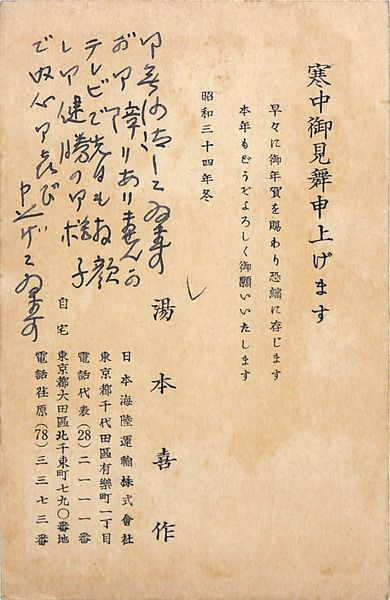 寒中御見舞申上げます
早々に御年賀を賜わり恐縮に存じます
本年もどうぞよろしく御願いいたします
昭和三十四年冬
湯本喜作
日本海陸運輸株式會社
東京都千代田區有樂町一丁目
電話代表(28)二一一一番
自宅
東京都大田區北千束町七九〇番地
電話荏原(78)三三七三番
御無沙汰して居ります
お障りありませんか
テレビで先日もお顔
し御健勝の御様子
で御喜び申上げて居ります